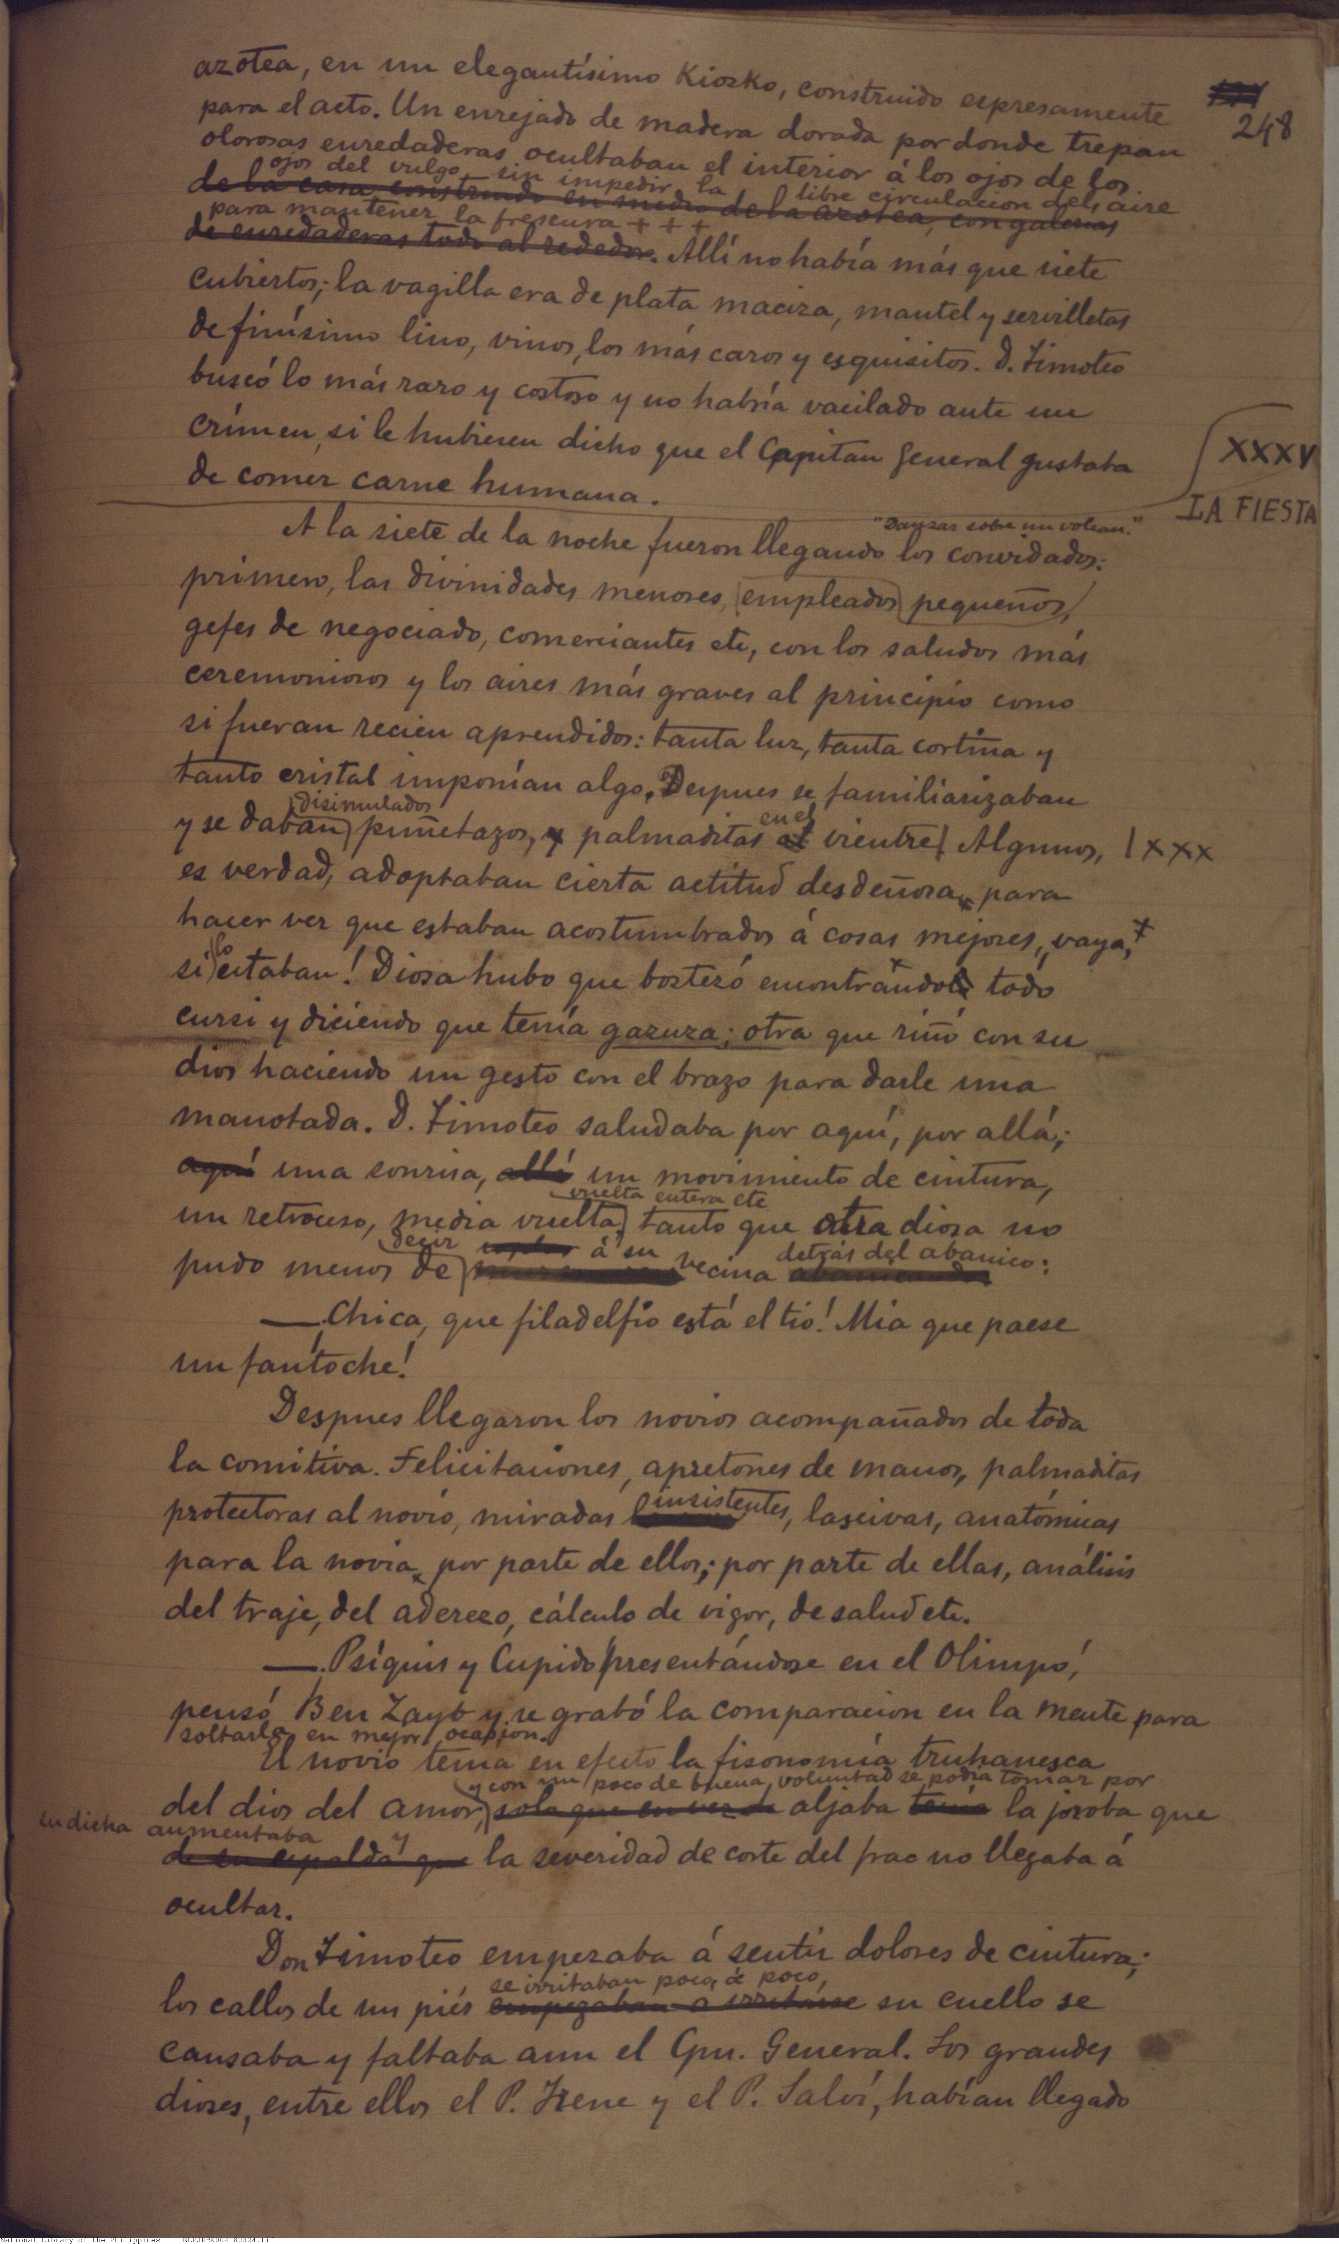 248
azotea, en un elegantísimo Kiozko, construido expresamente
para el acto. Un enrejado de madera dorada por donde trepan
olorosas enredaderas ocultaban el interior á los ojos de los
ojos del vulgo, sin impedir la libre circulacion del aire
de la casa construido en medio de la azotea, con galerias
para mantener la frescura + + +
de enredaderas todo al rededor. Allí no había más que siete
cubiertos; la vagilla era de plata maciza, mantel y servilletas
de finísimo lino, vinos, los más caros y esquisitos. D. Timoteo
buscó lo más raro y costoso y no habría vacilado ante un
crímen, si le hubiesen dicho que el Capitan General gustaba
de comer carne humana.
XXXV
LA FIESTA
"Danzar sobre un volcan."
A la siete de la noche fueron llegando los convidados:
primero, las divinidades menores, empleados pequeños,
gefes de negociado, comerciantes etc, con los saludos más
ceremoniosos y los aires más graves al principio como
si fueran recien aprendidos: tanta luz, tanta cortina y
tanto cristal imponían algo. Despues se familiarizaban
disimulados
en el
y se daban puñetazos, y palmaditas al vientre. Algunos, | x x x
es verdad, adoptaban cierta actitud desdeñosa para
hacer ver que estaban acostumbrados á cosas mejores, vaya,
lo
si estaban! Diosa hubo que bostezó encontrándolo todo
cursi y diciendo que tenía gazuza; otra que riñó con su
dios haciendo un gesto con el brazo para darle una
manotada. D. Timoteo saludaba por aquí, por allá;
aquí una sonrisa, allá un movimiento de cintura,
vuelta entera etc
un retroceso, media vuelta, tanto que otra diosa no
decir á su detrás del abanico:
pudo menos de vecina
—Chica, que filadelfio está el tio! Mia que paese
un fantoche!
Despues llegaron los novios acompañados de toda
la comitiva. Felicitaciones, apretones de manos, palmaditas
protectoras al novio, miradas insistentes, lascivas, anatómicas
para la novia por parte de ellos; por parte de ellas, análisis
del traje, del aderezo, cálculo de vigor, de salud etc.
—Psíquis y Cupido presentándose en el Olimpo,
pensó Ben Zayb y se grabó la comparacion en la mente para
soltarla en mejor ocasion.
El novio tenia en efecto la fisonomía truhanesca
y con un poco de buena voluntad se podia tomar por
del dios del amor, solo que en vez de aljaba tenía la joroba que
en dicha aumentaba y
de su espalda que la severidad de corte del frac no llegaba á
ocultar.
Don Timoteo empezaba á sentir dolores de cintura;
se irritaban poco á poco,
los callos de sus piés empezaban a irritarse su cuello se
cansaba y faltaba aun el Gpn. General. Los grandes
dioses, entre ellos el P. Irene y el P. Salví, habían llegado